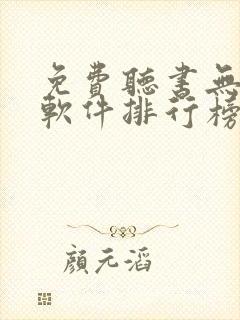 免費聽書無
軟件排行榜
顏元滔